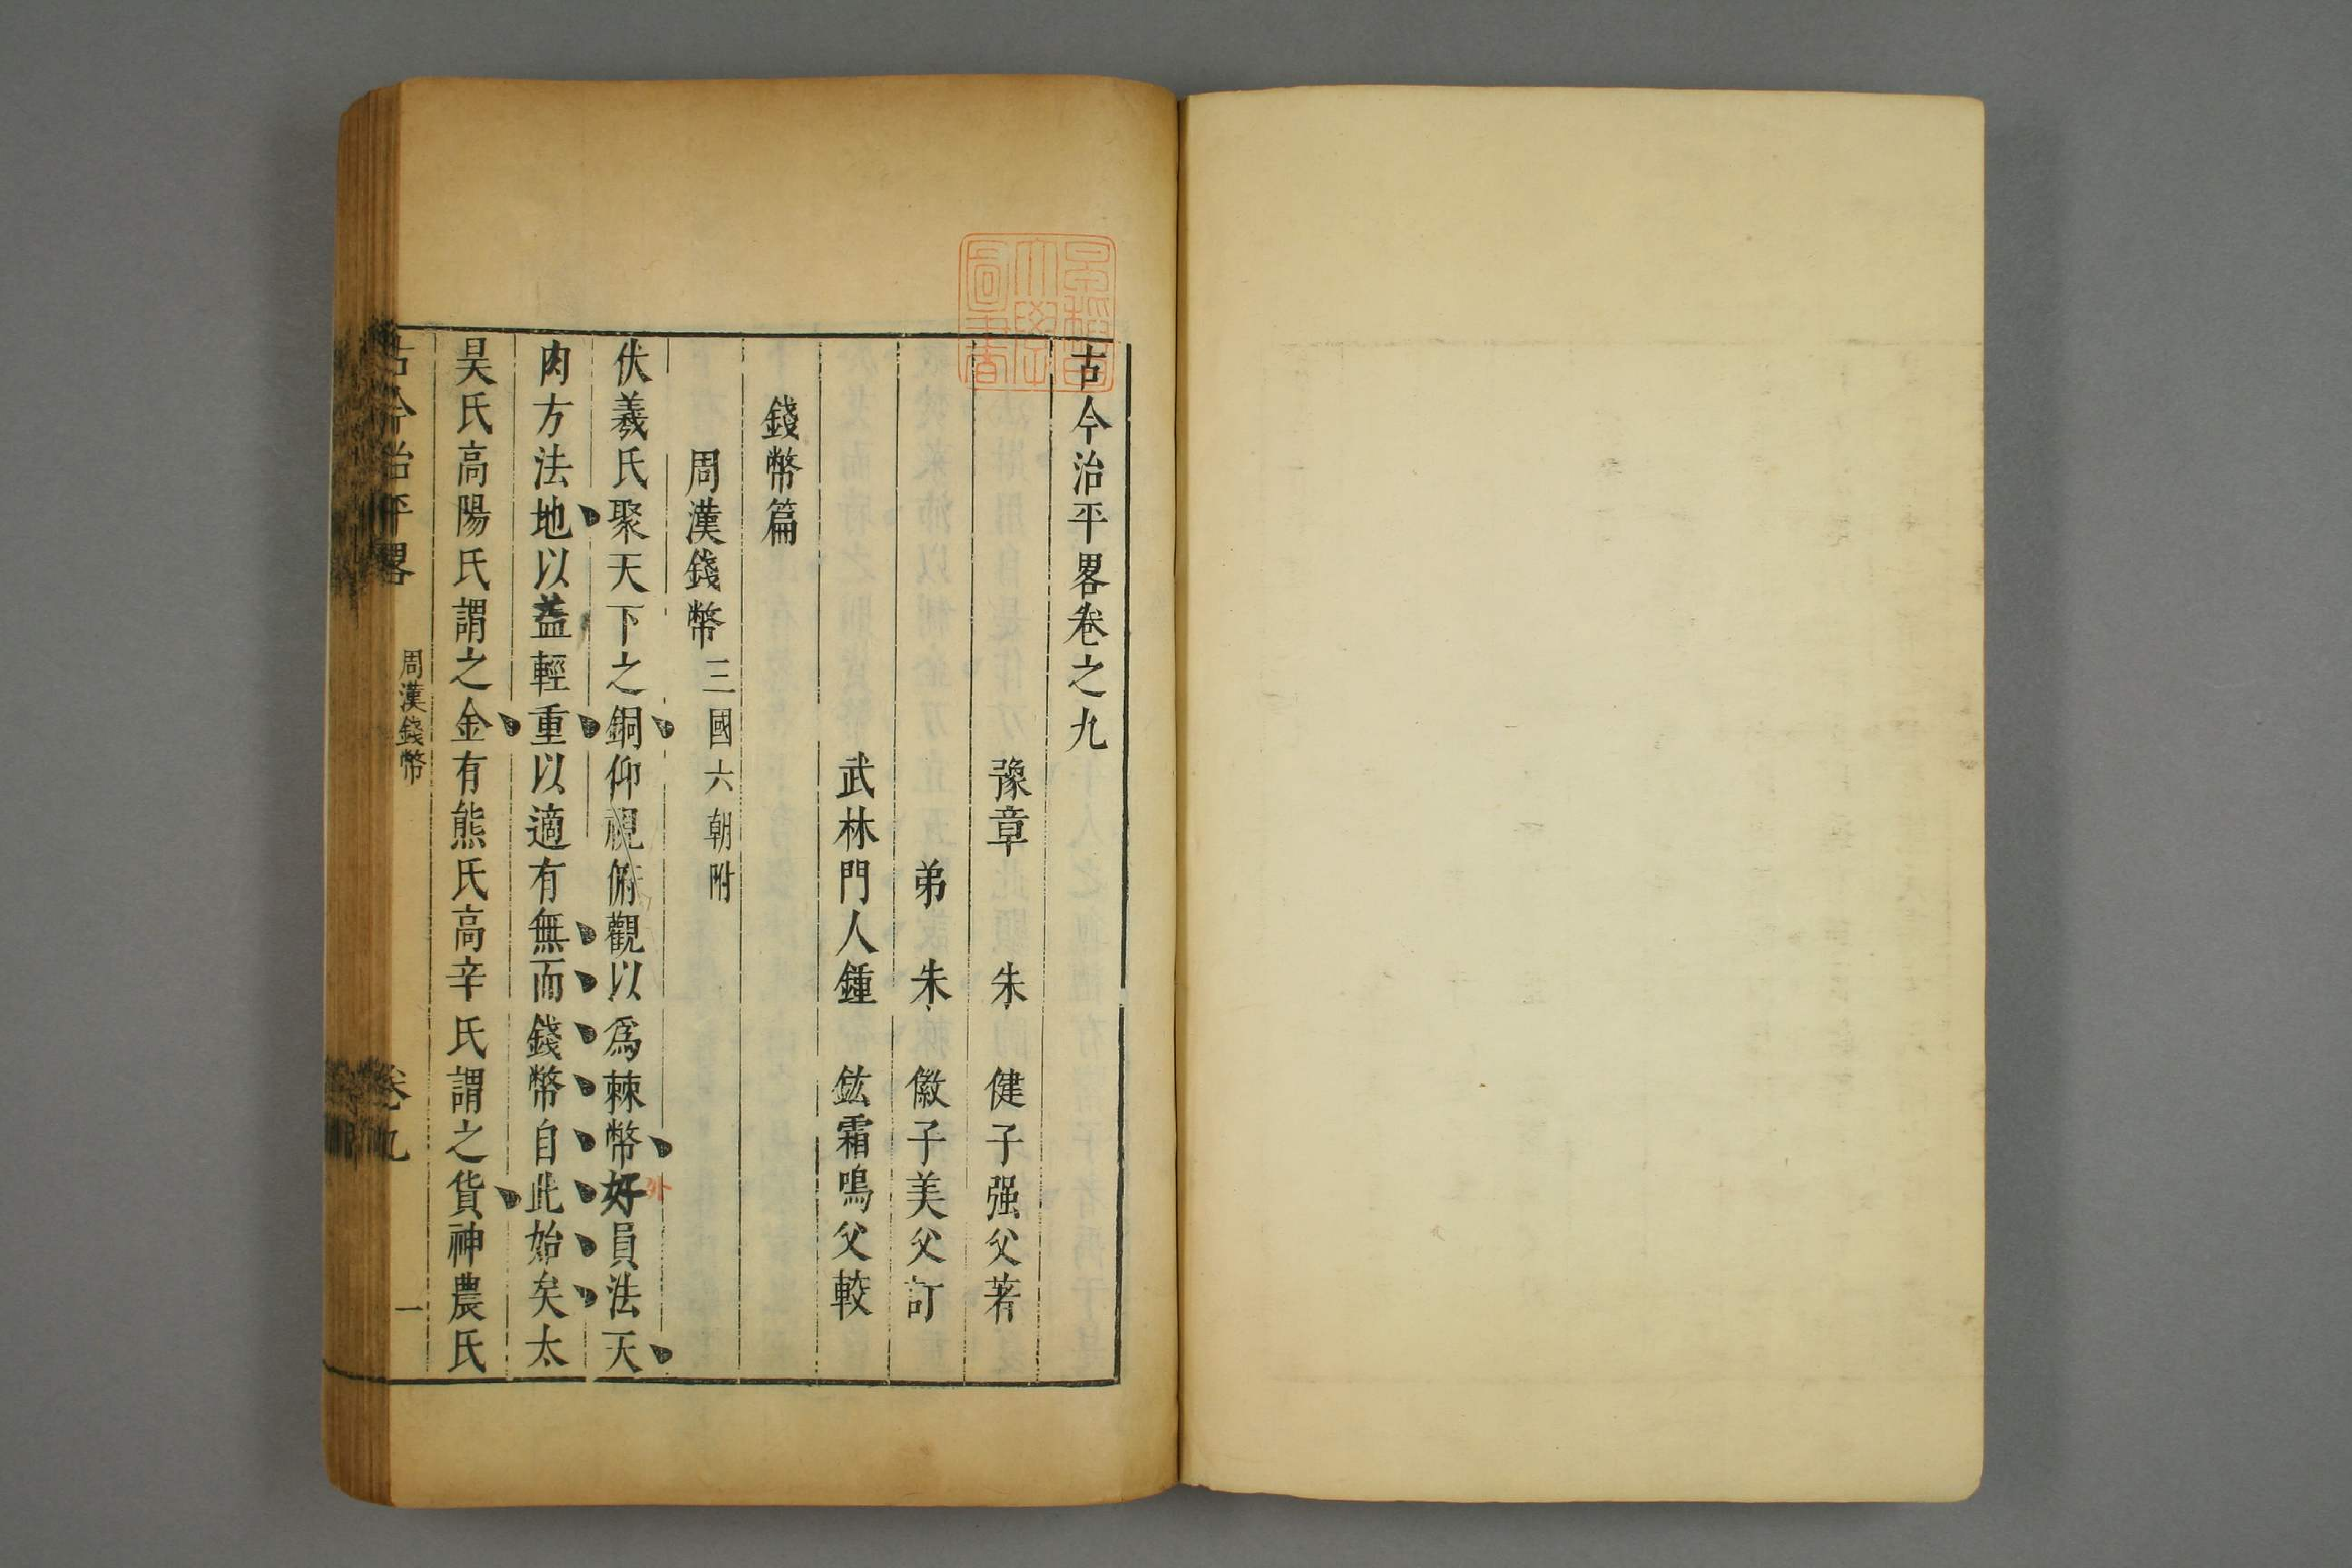 古今治平畧卷之九
豫章 朱 健子强父著
弟 朱 徽子美父訂
武林門人鍾 鉉霜鳴父較
錢幣篇
周漢錢幣三國六朝附
伏羲氏聚天下之銅仰視俯觀以爲棘幣好員法天
外
肉方法地以益輕重以適有無而錢幣自此始矣太
昊氏高陽氏謂之金有熊氏高辛氏謂之貨神農氏
古今治平畧 周漢錢幣 卷九 一
早稻田大學圖書